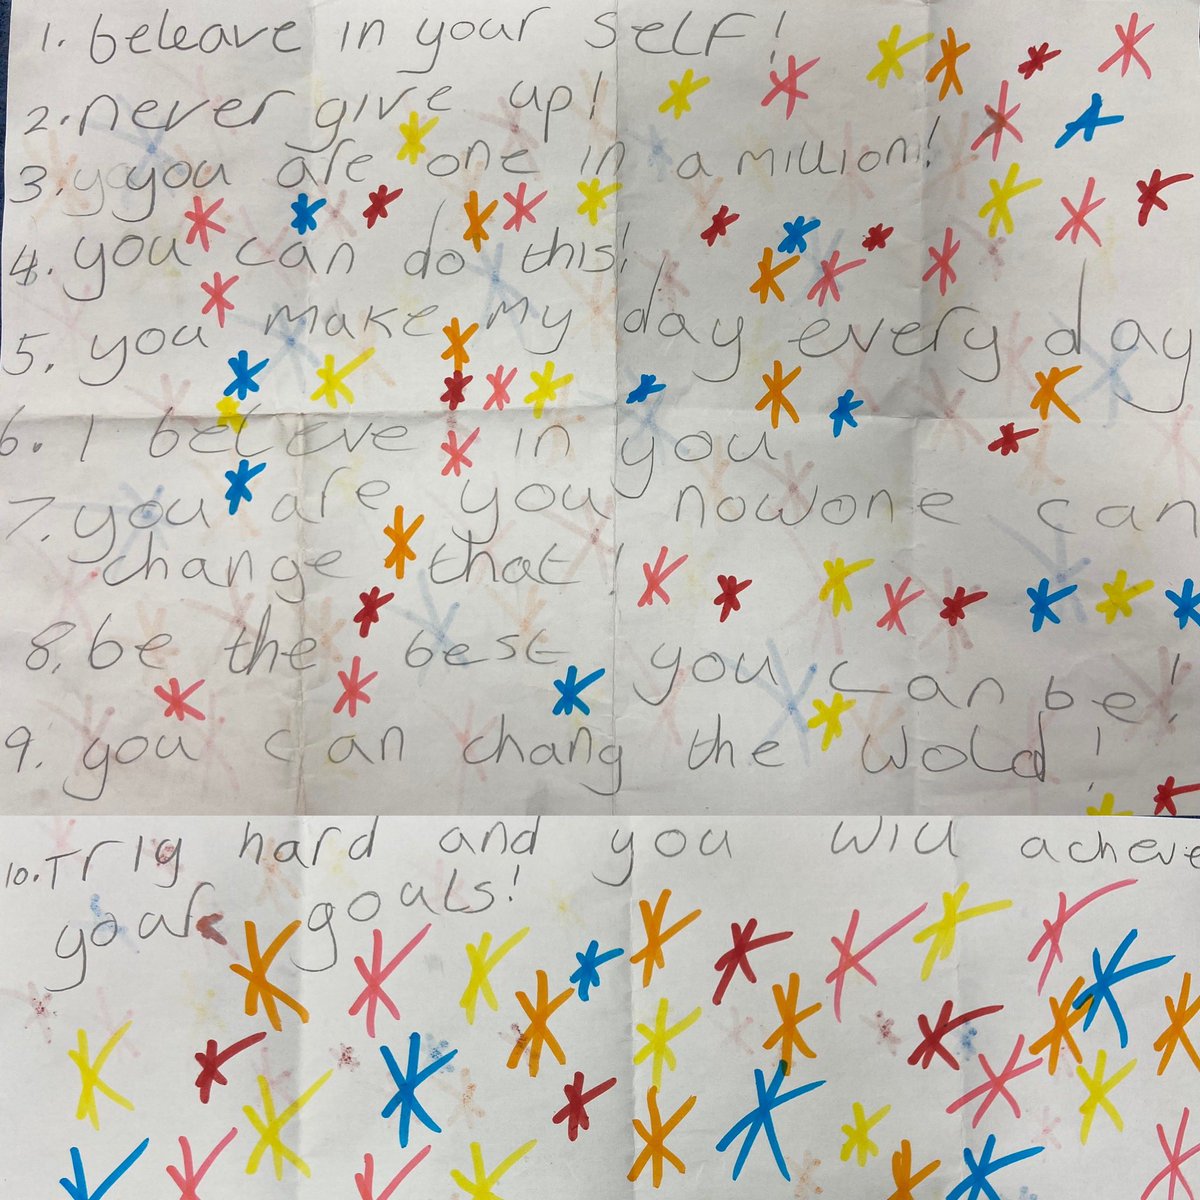 1. beleave in your self!
2. never give up!
3. you are one in a million!
4. you can do this!
5. you make my day every day
6. I beleve in you
7. you are you nowone can
change that!
8. be the best you can be!
9. you can chang the wold!
10. Triy hard and you will acheve
your goals!